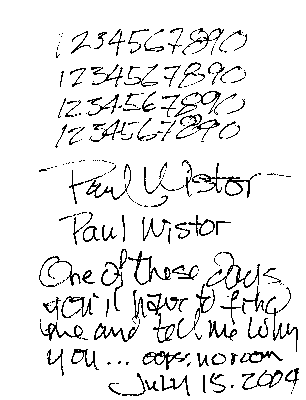 1234567890
1234567890
1234567890
1234567890
Paul Wistor
Paul Wistor
One of these days
you'll have to find
me and tell me why
you... oops. no room
July 15. 2004